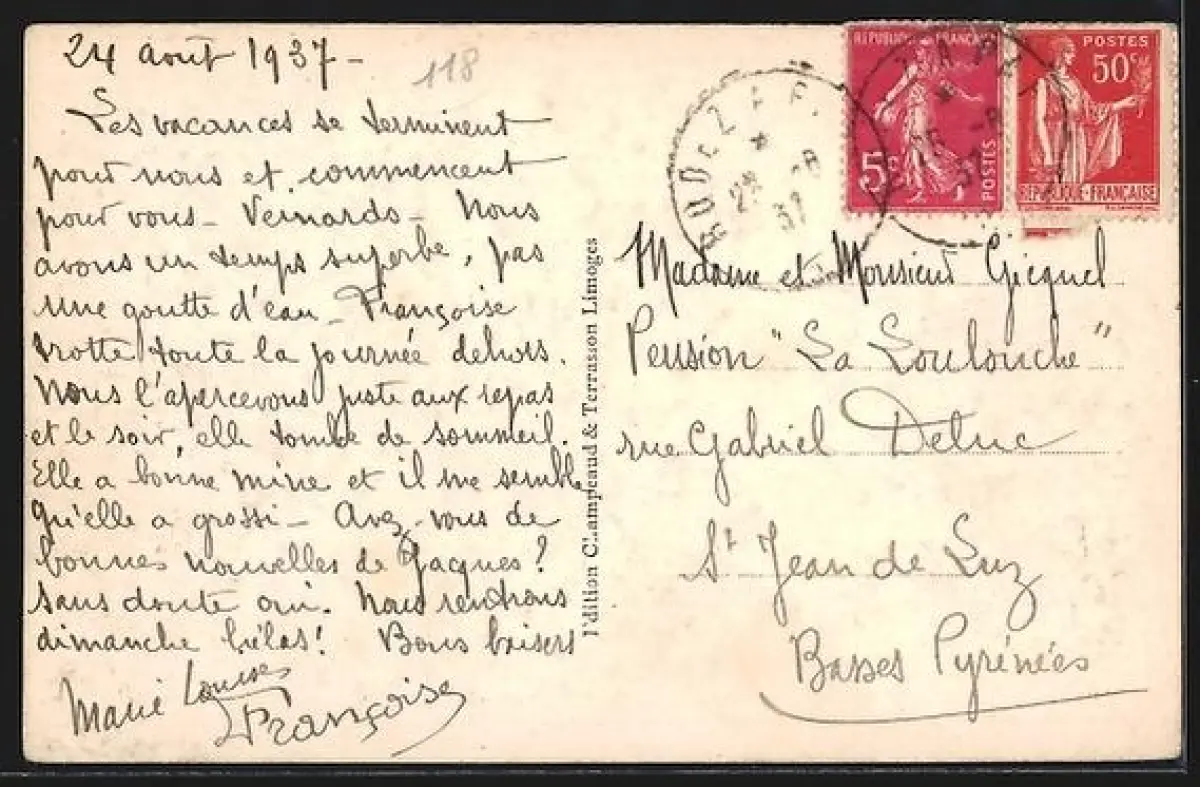 24 août 1937 -
118
Les vacances se terminent
pour nous et commencent
pour vous - Veinards - Nous
avons un temps superbe, pas
une goutte d'eau - Françoise
trotte toute la journée dehors.
Nous l'apercevons juste aux repas
et le soir, elle tombe de sommeil.
Elle a bonne mine et il me semble
qu'elle a grossi - Avez-vous de
bonnes nouvelles de Jacques?
Sans doute oui. Nous rentrons
dimanche hélas! Bons baisers
Marie Louise
Françoise
Edition Champeaud & Terrasson Limoges
REPUBLIQUE FRANÇAISE
5c
POSTES
POSTES
50c
REPUBLIQUE-FRANÇAISE
Madame et Monsieur Gicquel
Pension "La Loulouche"
rue Gabriel Deluc
St Jean de Luz
Basses Pyrénées